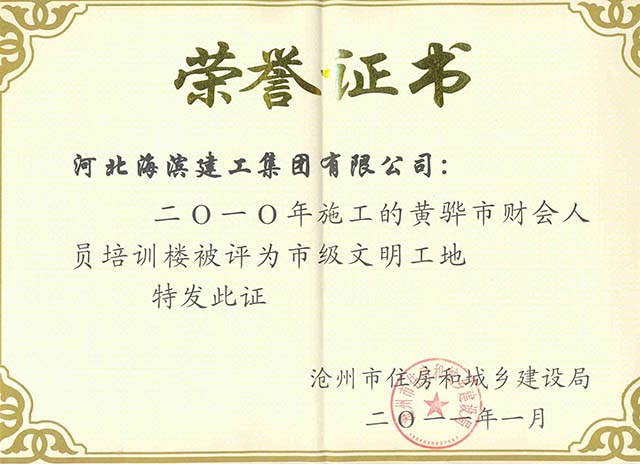 荣誉证书
河北海滨建工集团有限公司:
二〇一〇年施工的黄骅市财会人
员培训楼被评为市级文明工地
特发此证
沧州市住房和城乡建设局
二〇一一年一月
沧州市住房和城乡建设局